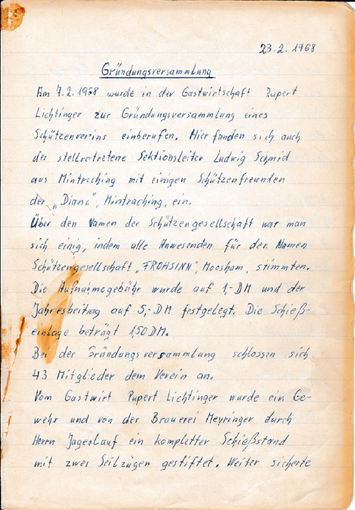 23.2.1968
Gründungsversammlung
Am 7.2.1968 wurde in der Gastwirtschaft Rupert
Lichtinger zur Gründungsversammlung eines
Schützenvereins einberufen. Hier fanden sich auch
der stellvertretene Sektionsleiter Ludwig Schmid
aus Mintraching mit einigen Schützenfreunden
der „Diana", Mintraching, ein.
Über den Namen der Schützengesellschaft war man
sich einig, indem alle Anwesenden für den Namen
Schützengesellschaft „FROHSINN", Moosham, stimmten.
Die Aufnahmegebühr wurde auf 1,-DM und der
Jahresbeitrag auf 5,-DM festgelegt. Die Schieß-
einlage beträgt 1,50 DM.
Bei der Gründungsversammlung schlossen sich
43 Mitglieder dem Verein an.
Vom Gastwirt Rupert Lichtinger wurde ein Ge-
wehr und von der Brauerei Meyringer durch
Herrn Jagerlauf ein kompletter Schießstand
mit zwei Seilzügen gestiftet. Weiter sicherte